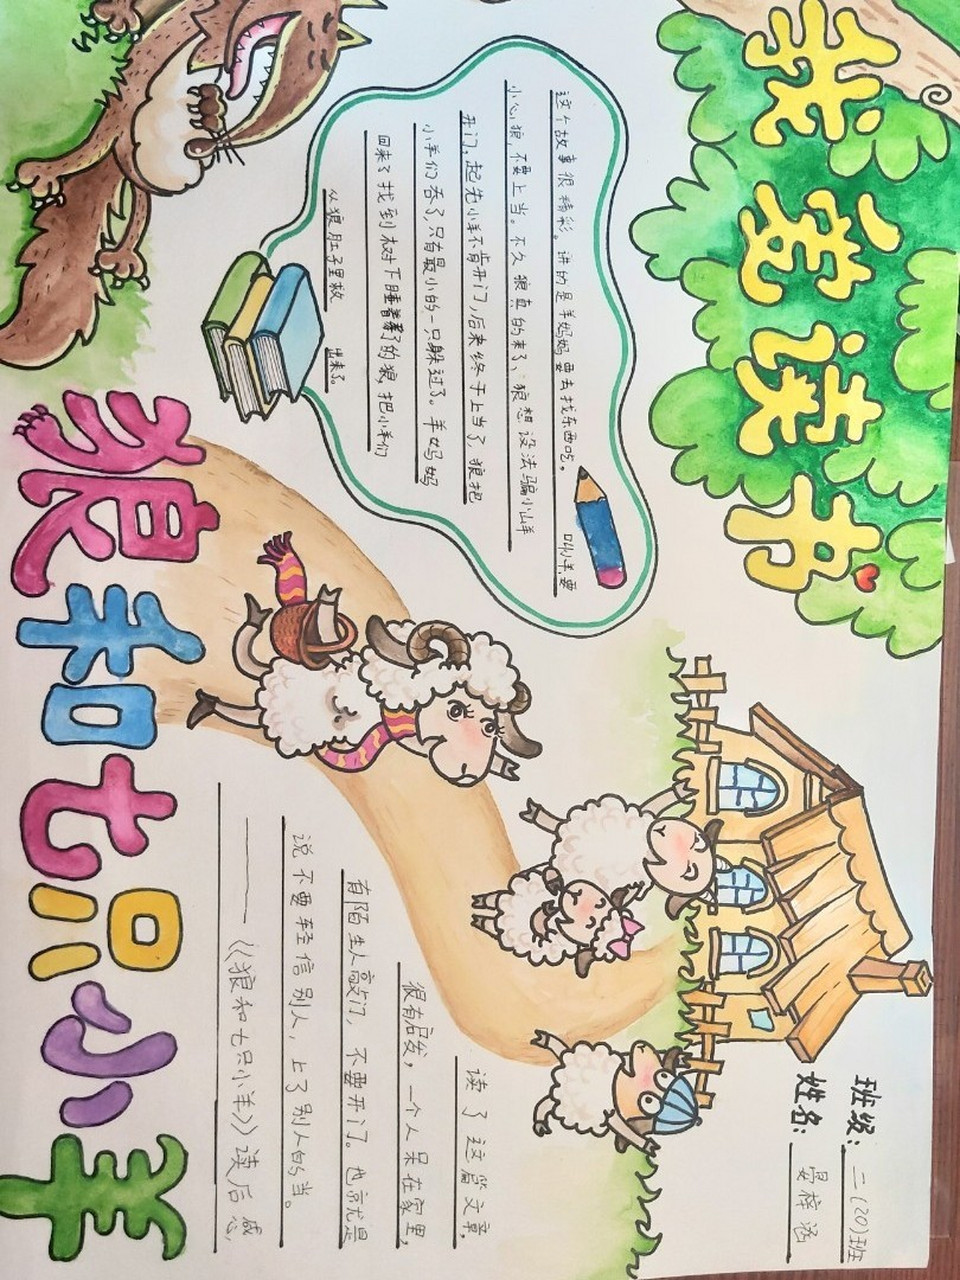 我爱读书
班级：二(20)班
姓名：晏梓涵
这个故事很精彩。讲的是羊妈妈要去找东西吃。叫小羊要
小心狼，不要上当。不久狼真的来了、狼想设法骗小山羊
开门。起先小羊不肯开门，后来终于上当了，狼把
小羊们吞了只有最小的一只躲过了。羊妈妈
回来了找到树下睡着了的狼，把小羊们
从狼肚子里救出来了。
读了这篇文章，
很有启发，一个人呆在家里，
有陌生人敲门，不要开门。也就是
说不要轻信别人，上了别人的当。
——《狼和七只小羊》读后感
狼和七只小羊